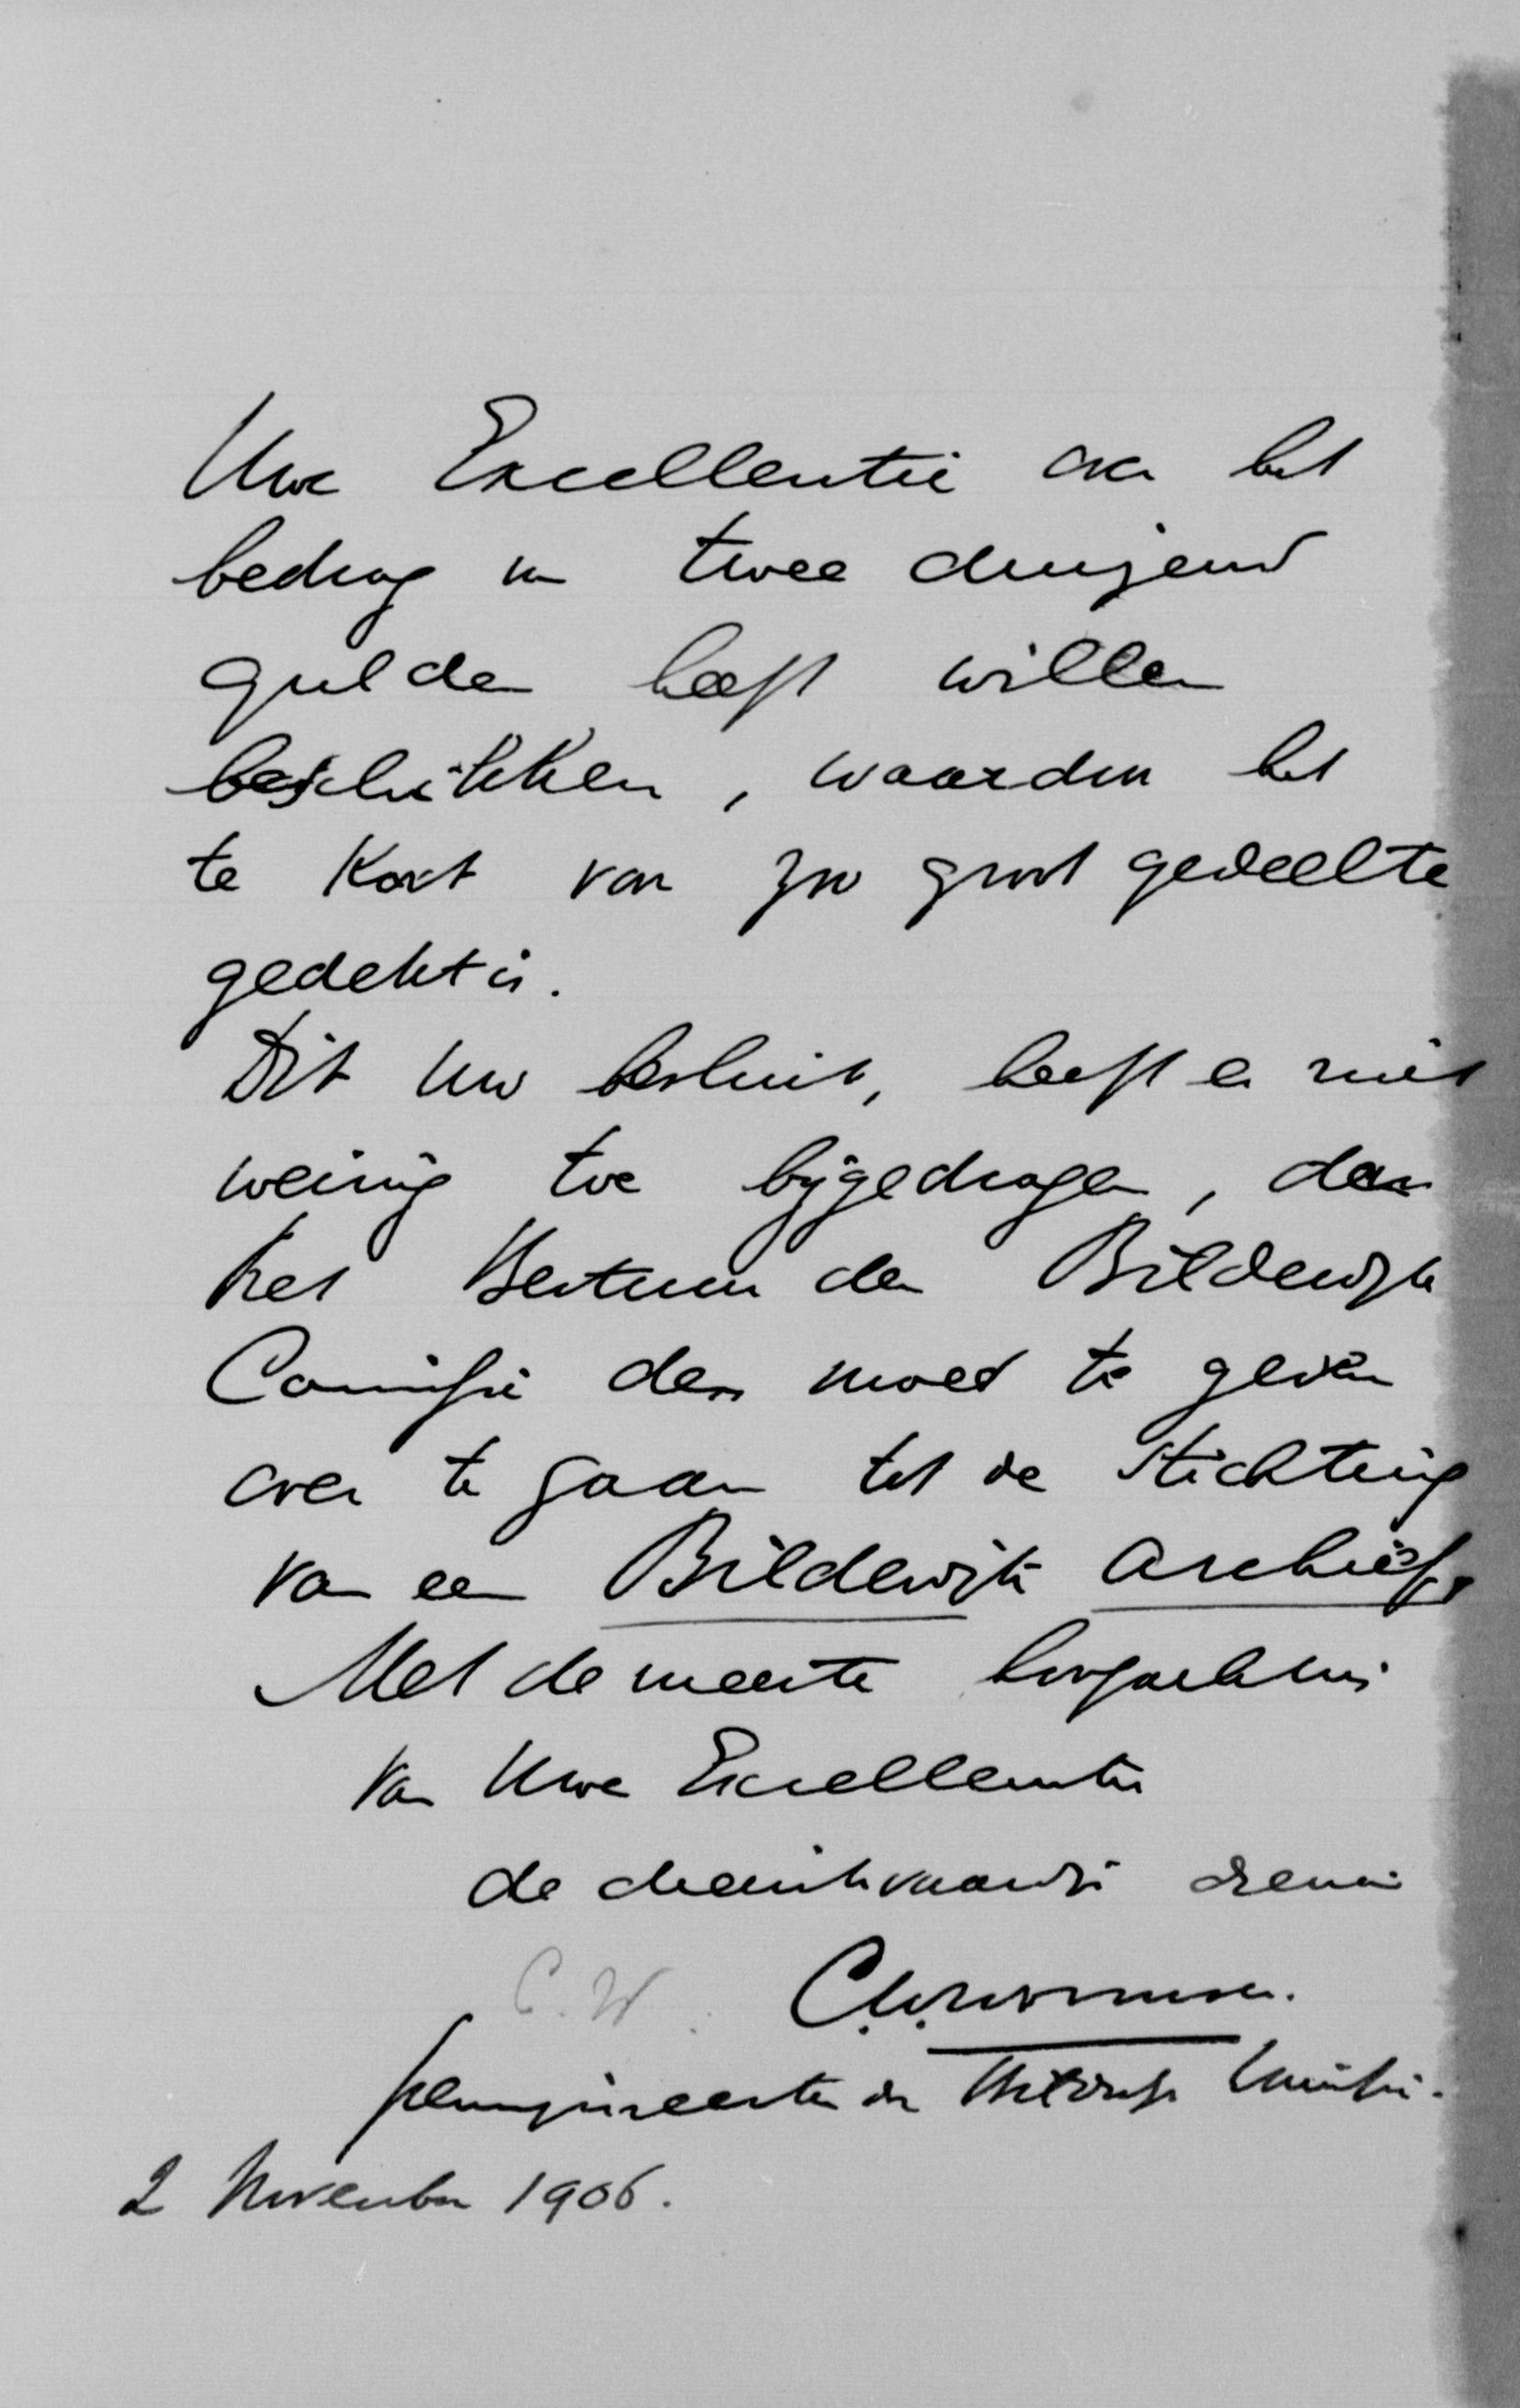 Uwe Excellentie over het
bedrag van twee duizend
gulden heeft willen
beschikken, waardoor het
te Kort voor zoo groot gedeelte
gedekt is.
Dit Uw besluit, heeft er niet
weinig toe bijgedragen, dan
het Bestuur der Bilderdijk
Commissie den moed te geven
over te gaan tot de stichting
van een Bilderdijk archief.
Met de meeste hoogachting
van Uwe Excellentie
de dienstvaardige dienaar
C. W.
penningmeester der Bilderdijk Commissie.
2 November 1906.